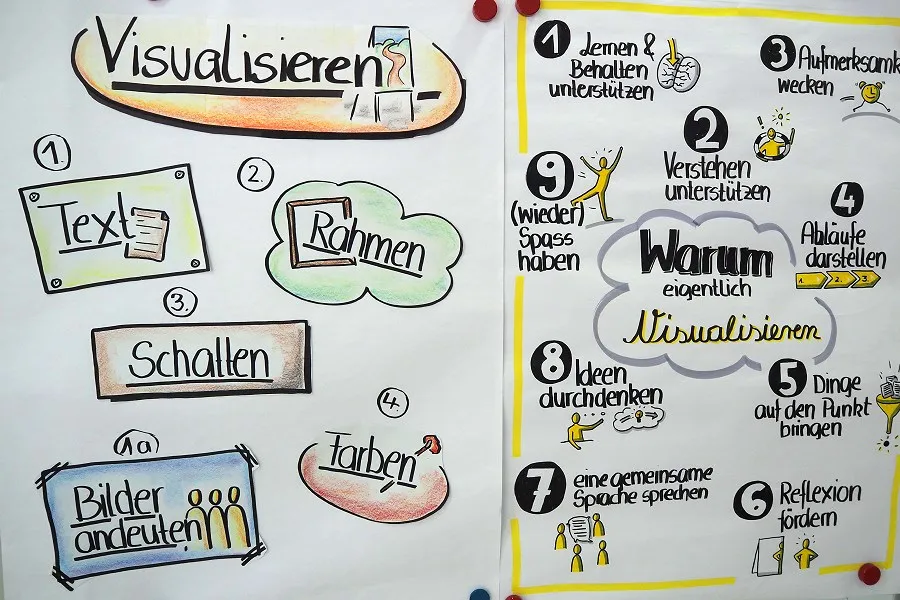 Visualisieren
1.
Text
2.
Rahmen
3.
Schatten
4.
Farben
1a)
Bilder
andeuten
Warum
eigentlich
Visualisieren
1 Lernen &
Behalten
unterstützen
2
Verstehen
unterstützen
3 Aufmerksamk
wecken
4
Abläufe
darstellen
1. 2. 3.
5 Dinge
auf den Punkt
bringen
6 Reflexion
fördern
7 eine gemeinsame
Sprache sprechen
8 Ideen
durchdenken
9
(wieder)
Spass
haben